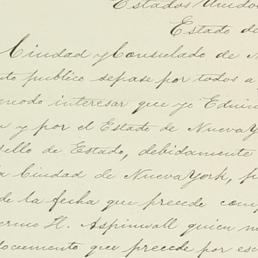 Estados Unidos
Estado de
Ciudad y Consulado de N
to publico sepase por todos a
modo interesar que yo Edwin
n y por el Estado de Nueva Y
sello de Estado, debidamente
a Ciudad de Nueva York, p
de la fecha que precede com
ermo H. Aspinwall quien m
documento que precede por es